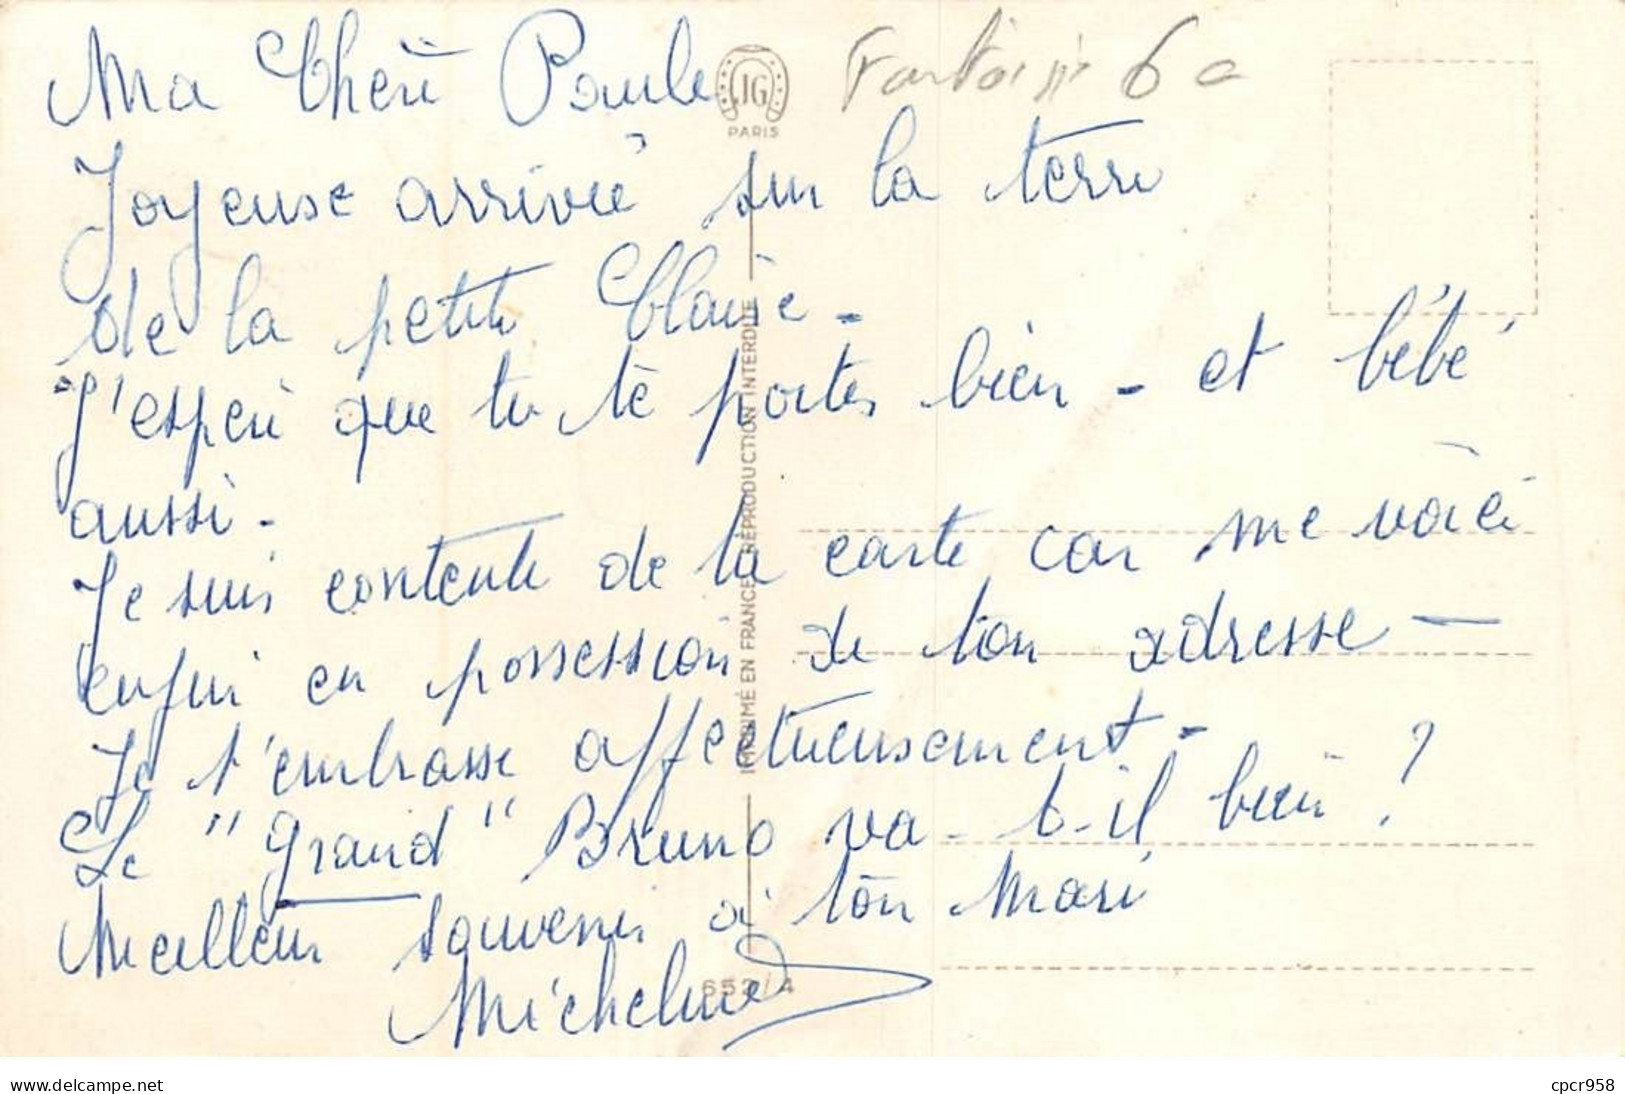 Ma Chérie Paule
JG
PARIS
Fantaisie 6e
Joyeuse arrivée sur la terre
de la petite Claire -
J'espère que tu te portes bien - et bébé
aussi -
Je suis contente de la carte car me voici
enfin en possession de ton adresse -
Je t'embrasse affectueusement -
Le "grand" Bruno va-t-il bien ?
Meilleurs souvenirs à ton Mari
Micheline
IMPRIMÉ EN FRANCE - REPRODUCTION INTERDITE
652/4
www.delcampe.net
cpcr958